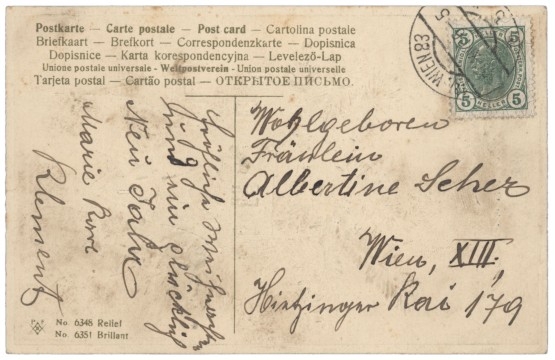 Postkarte — Carte postale — Post card — Cartolina postale
Briefkaart — Brefkort — Correspondenzkarte — Dopisnica
Dopisnice — Karta korespondencyjna — Levelező-Lap
Unione postale universale - Weltpostverein - Union postale universelle
Tarjeta postal — Cartão postal — ОТКРЫТОЕ ПИСЬМО.
WIEN 83
5
5
5
5
HELLER
Fröhliche Weihnachten
und ein glücklich
Neu Jahr
Marie
Klement
Wohlgeboren
Fräulein
Albertine Scher
Wien, XIII,
Hietzinger Kai 179
No. 6348 Relief
No. 6351 Brillant